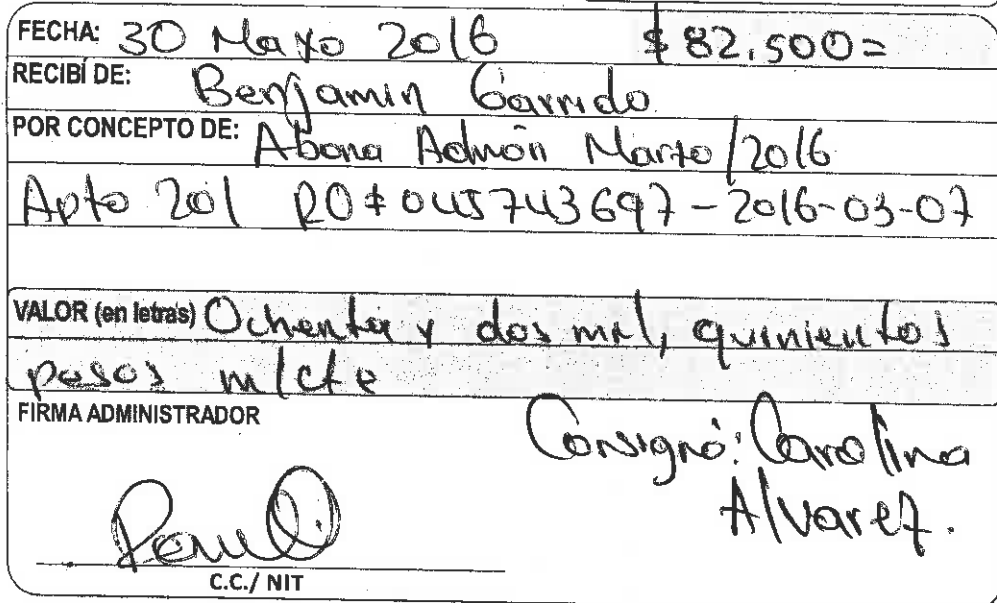 FECHA: 30 Mayo 2016 $ 82.500=
RECIBÍ DE: Benjamin Garrido
POR CONCEPTO DE: Abona Admón Marzo /2016
Apto 201 RO# 045743697 - 2016-03-07
VALOR (en letras) Ochenta y dos mil, quinientos
pesos m/cte
FIRMA ADMINISTRADOR
Consignó: Carolina
Alvarez.
C.C./ NIT